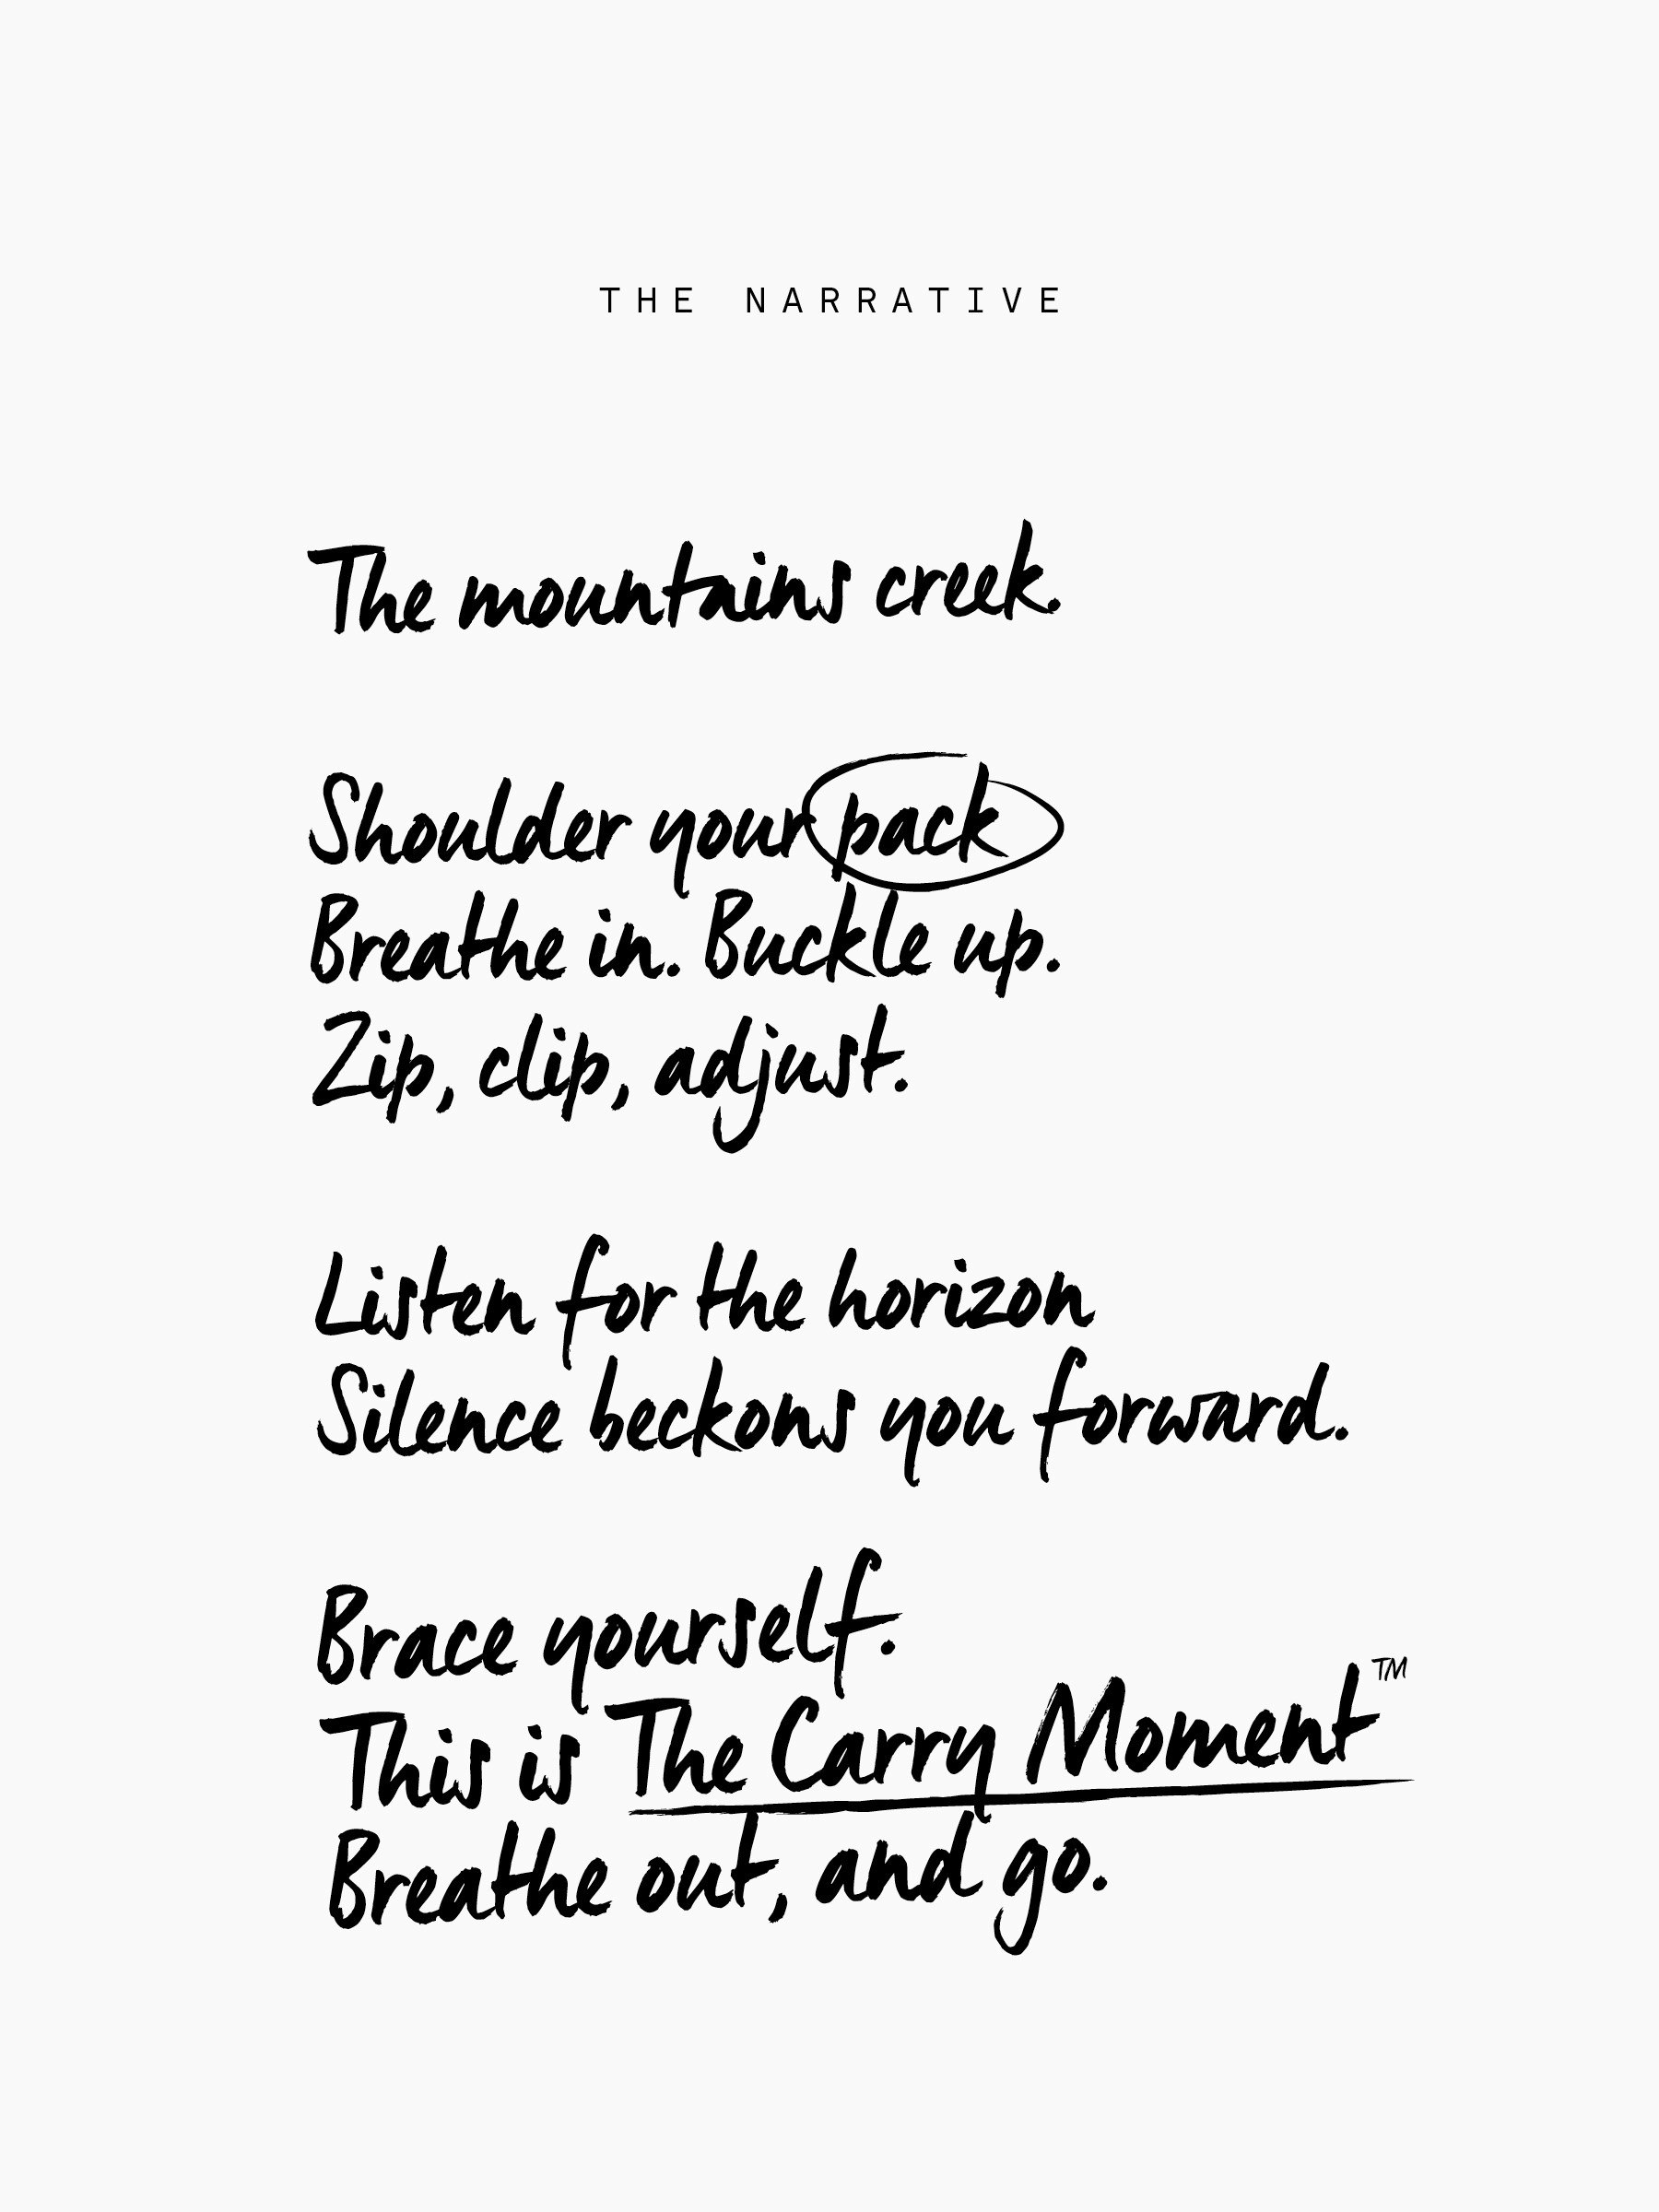 THE NARRATIVE
The mountains creek.
Shoulder your pack
Breathe in. Buckle up.
Zip, clip, adjust.
Listen for the horizon
Silence beckons you forward.
Brace yourself.
This is The Carry Moment™
Breathe out, and go.